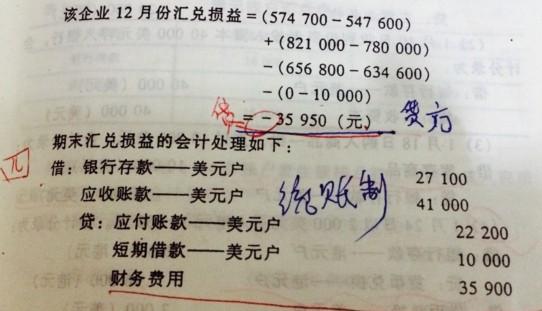 该企业12月份汇兑损益=(574 700-547 600)
+(821 000-780 000)
-(656 800-634 600)
-(0-10 000)
=-35 950 (元) 贷方
期末汇兑损益的会计处理如下:
借:银行存款——美元户 27 100
应收账款——美元户 41 000
贷:应付账款——美元户 22 200
短期借款——美元户 10 000
财务费用 35 900